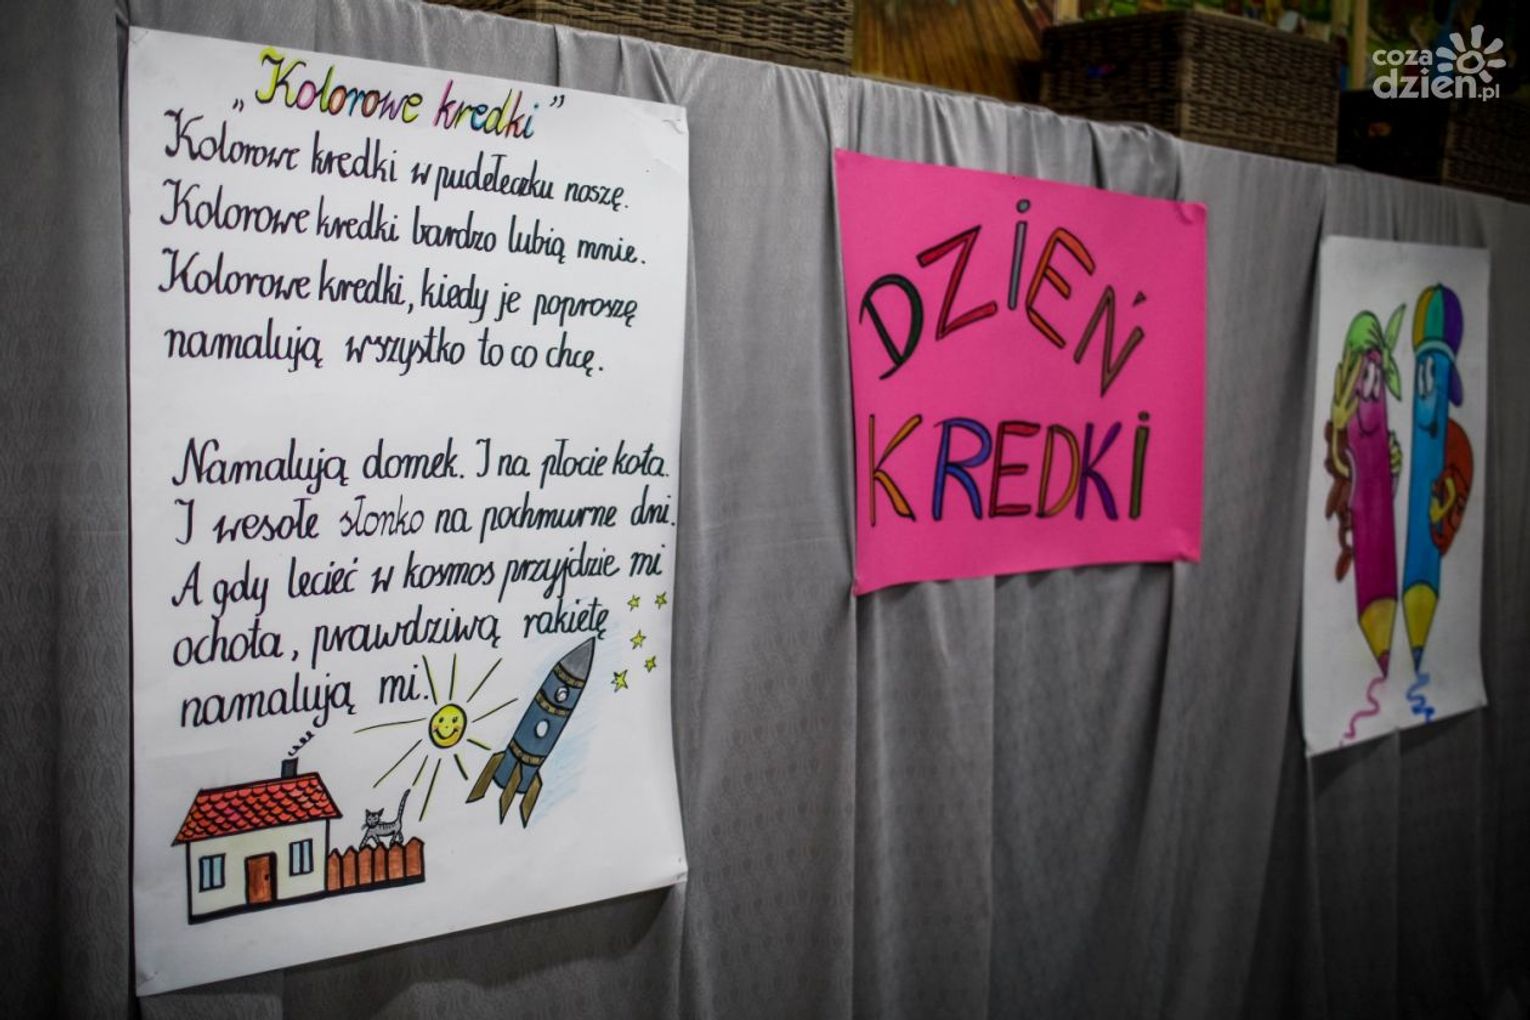 „Kolorowe kredki”
Kolorowe kredki w pudełeczku noszę.
Kolorowe kredki bardzo lubią mnie.
Kolorowe kredki, kiedy je poproszę
namalują wszystko to co chcę.
Namalują domek. I na płocie kota.
I wesołe słonko na pochmurne dni.
A gdy lecieć w kosmos przyjdzie mi
ochota, prawdziwą rakietę
namalują mi.
DZIEŃ
KREDKI
coza
dzien.pl